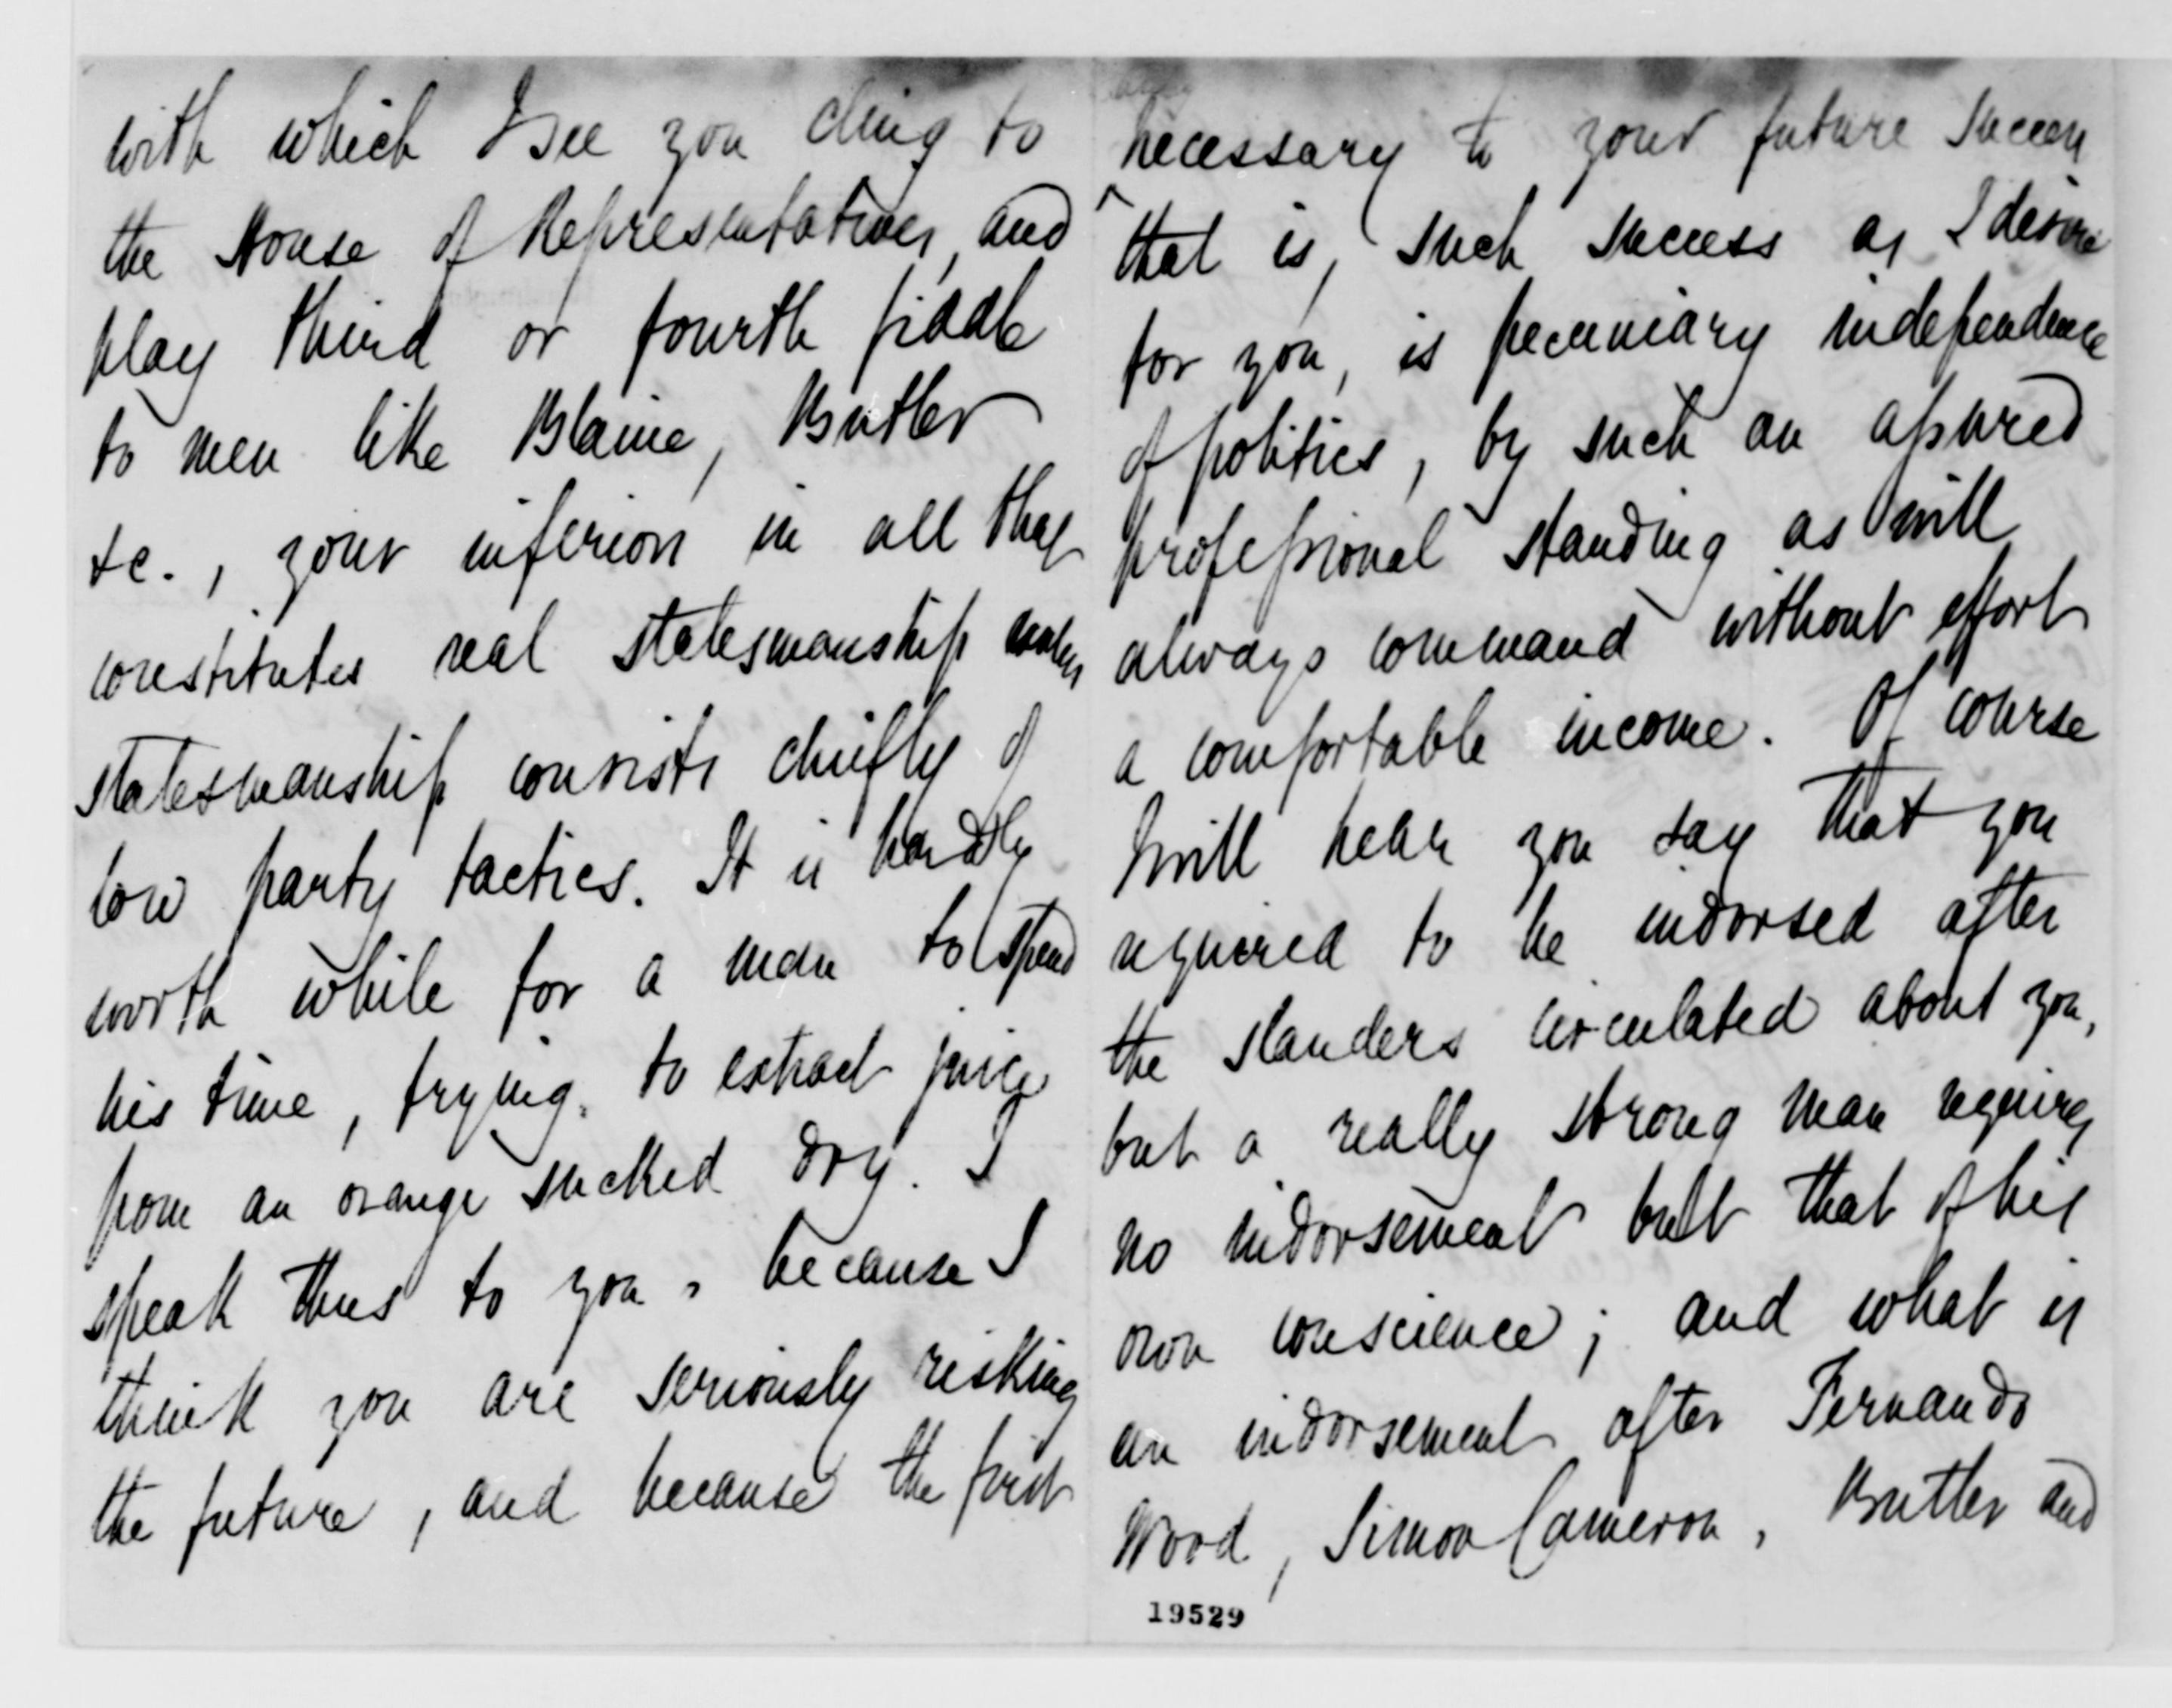 with which I see you cling to
the House of Representatives, and
play third or fourth fiddle
to men like Blaine, Butler
&c., your inferiors in all that
constitutes real statesmanship unless
statesmanship consists chiefly of
low party tactics. It is hardly
worth while for a man to spend
his time, trying, to extract juice
from an orange sucked dry. I
speak thus to you, because I
think you are seriously risking
the future, and because the first
necessary to your future success
that is, such success as I desire
for you, is pecuniary independence
of politics, by such an assured
professional standing as will
always command without effort
a comfortable income. Of course
I will hear you say that you
required to be indorsed after
the slanders circulated about you,
but a really strong man requires
no indorsement but that of his
own conscience; and what is
an indorsement after Fernando
Wood, Simon Cameron, Butler and
19529